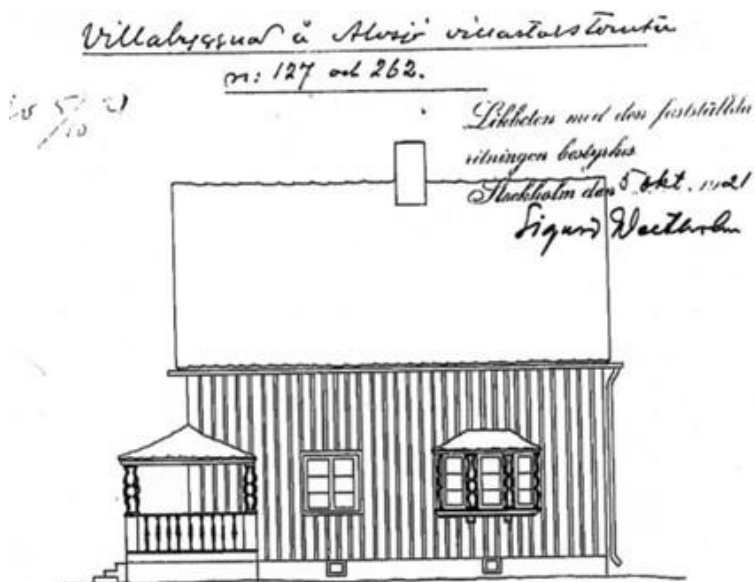 Villabyggnad å Älvsjö villastadstomter
n: 127 och 262.
5/10 21
Likheten med den fastställda
ritningen bestyrkes
Stockholm den 5 okt. 1921
Sigurd Westholm